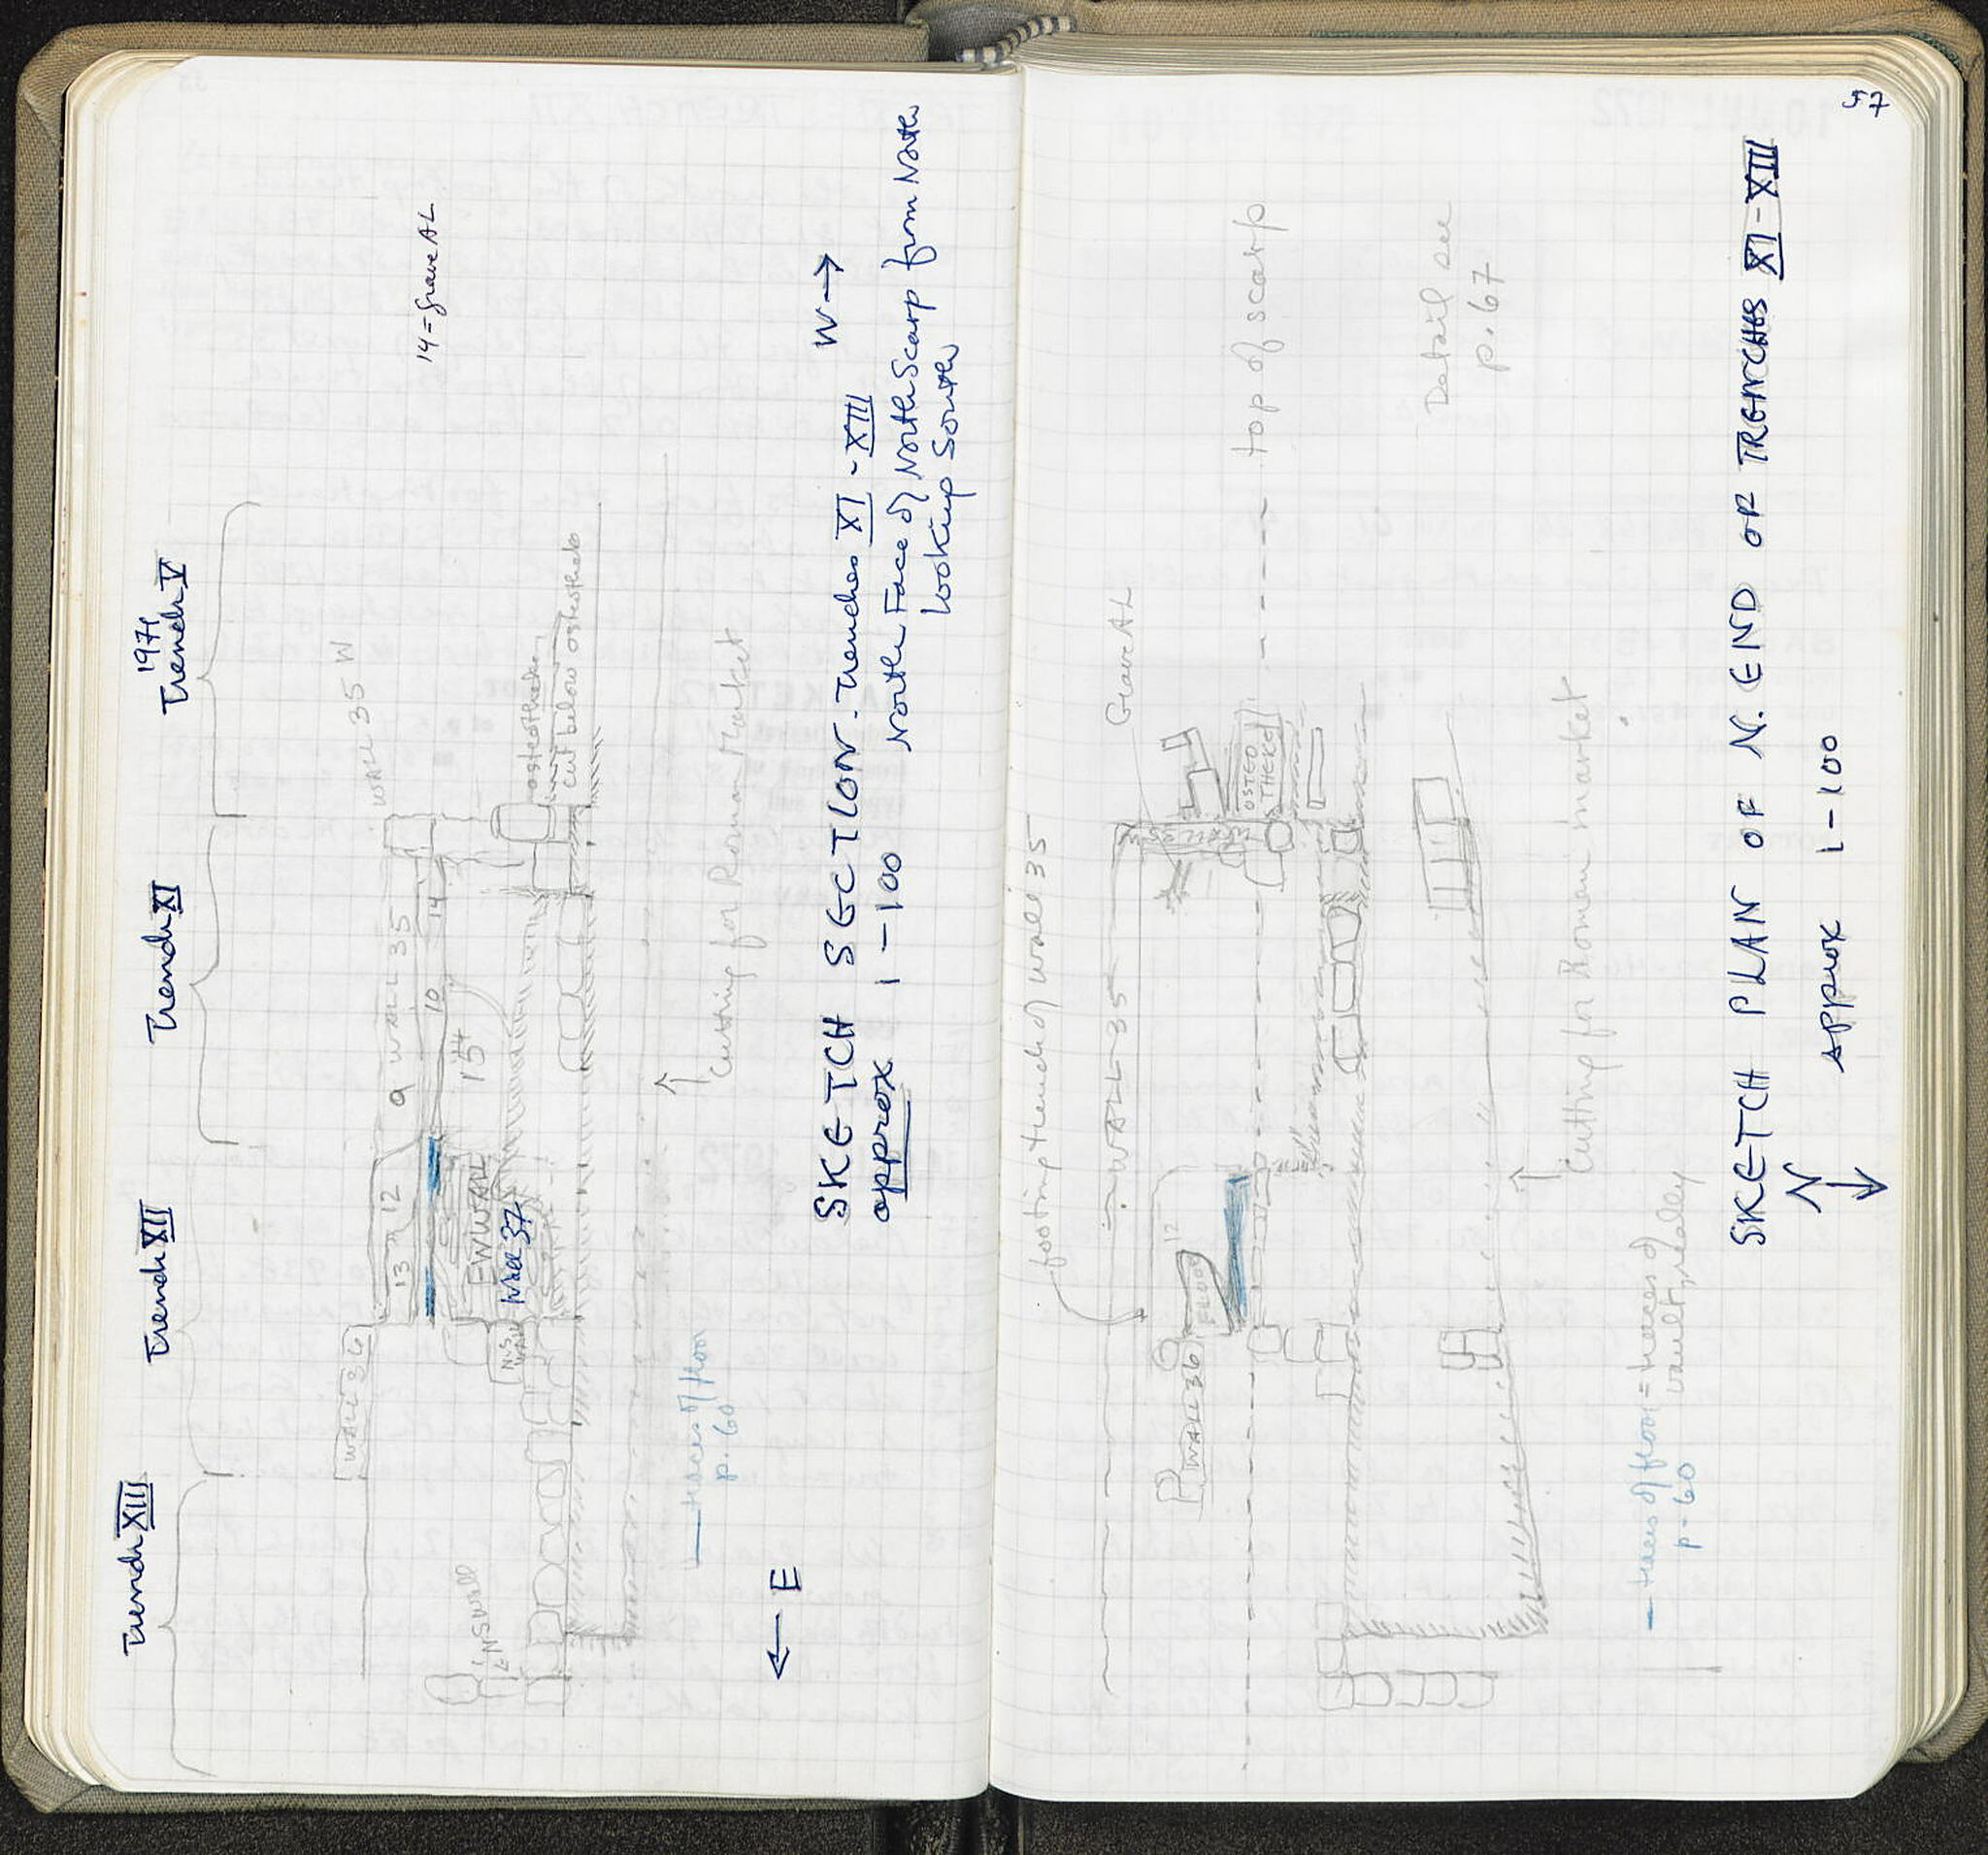 1971
Trench V
Trench XI
Trench XII
Trench XIII
14 = Grave AL
WALL 35 W
9 WALL 35
10
14
15+
13
12
WALL 36
EW WALL
Wall 37
N-S WALL
NS Wall
osteotheke
cut below osteotheke
Cutting for Roman Market
traces of floor
p. 60
← E
W →
SKETCH SECTION - Trenches XI - XIII
approx 1-100
North Face of North Scarp from North
looking South
57
footing trench of wall 35
WALL 35
Grave AL
WALL 35
OSTEO
THEKE
top of scarp
Detail see
p. 67
12
FLOOR
WALL 36
Cutting for Roman market
traces of floor = traces of
vault, really
p. 60
SKETCH PLAN OF N. END OF TRENCHES XI - XIII
approx 1-100
N